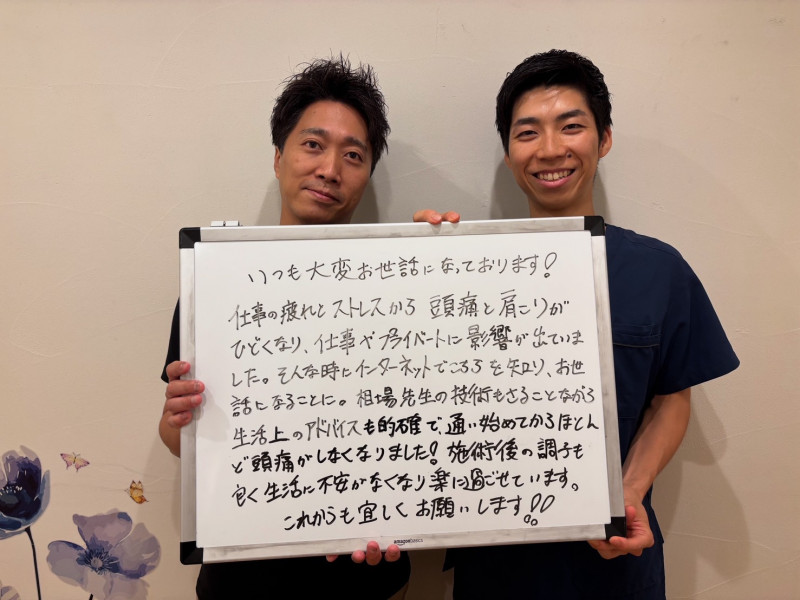 いつも大変お世話になっております！
仕事の疲れとストレスから 頭痛と肩こりが
ひどくなり、仕事やプライベートに影響が出ていま
した。そんな時にインターネットでこころを知り、お世
話になることに。相場先生の技術もさることながら
生活上のアドバイスも的確で、通い始めてからほとん
ど頭痛がしなくなりました！施術後の調子も
良く生活に不安がなくなり楽に過ごせています。
これからも宜しくお願いします！！
amazonbasics